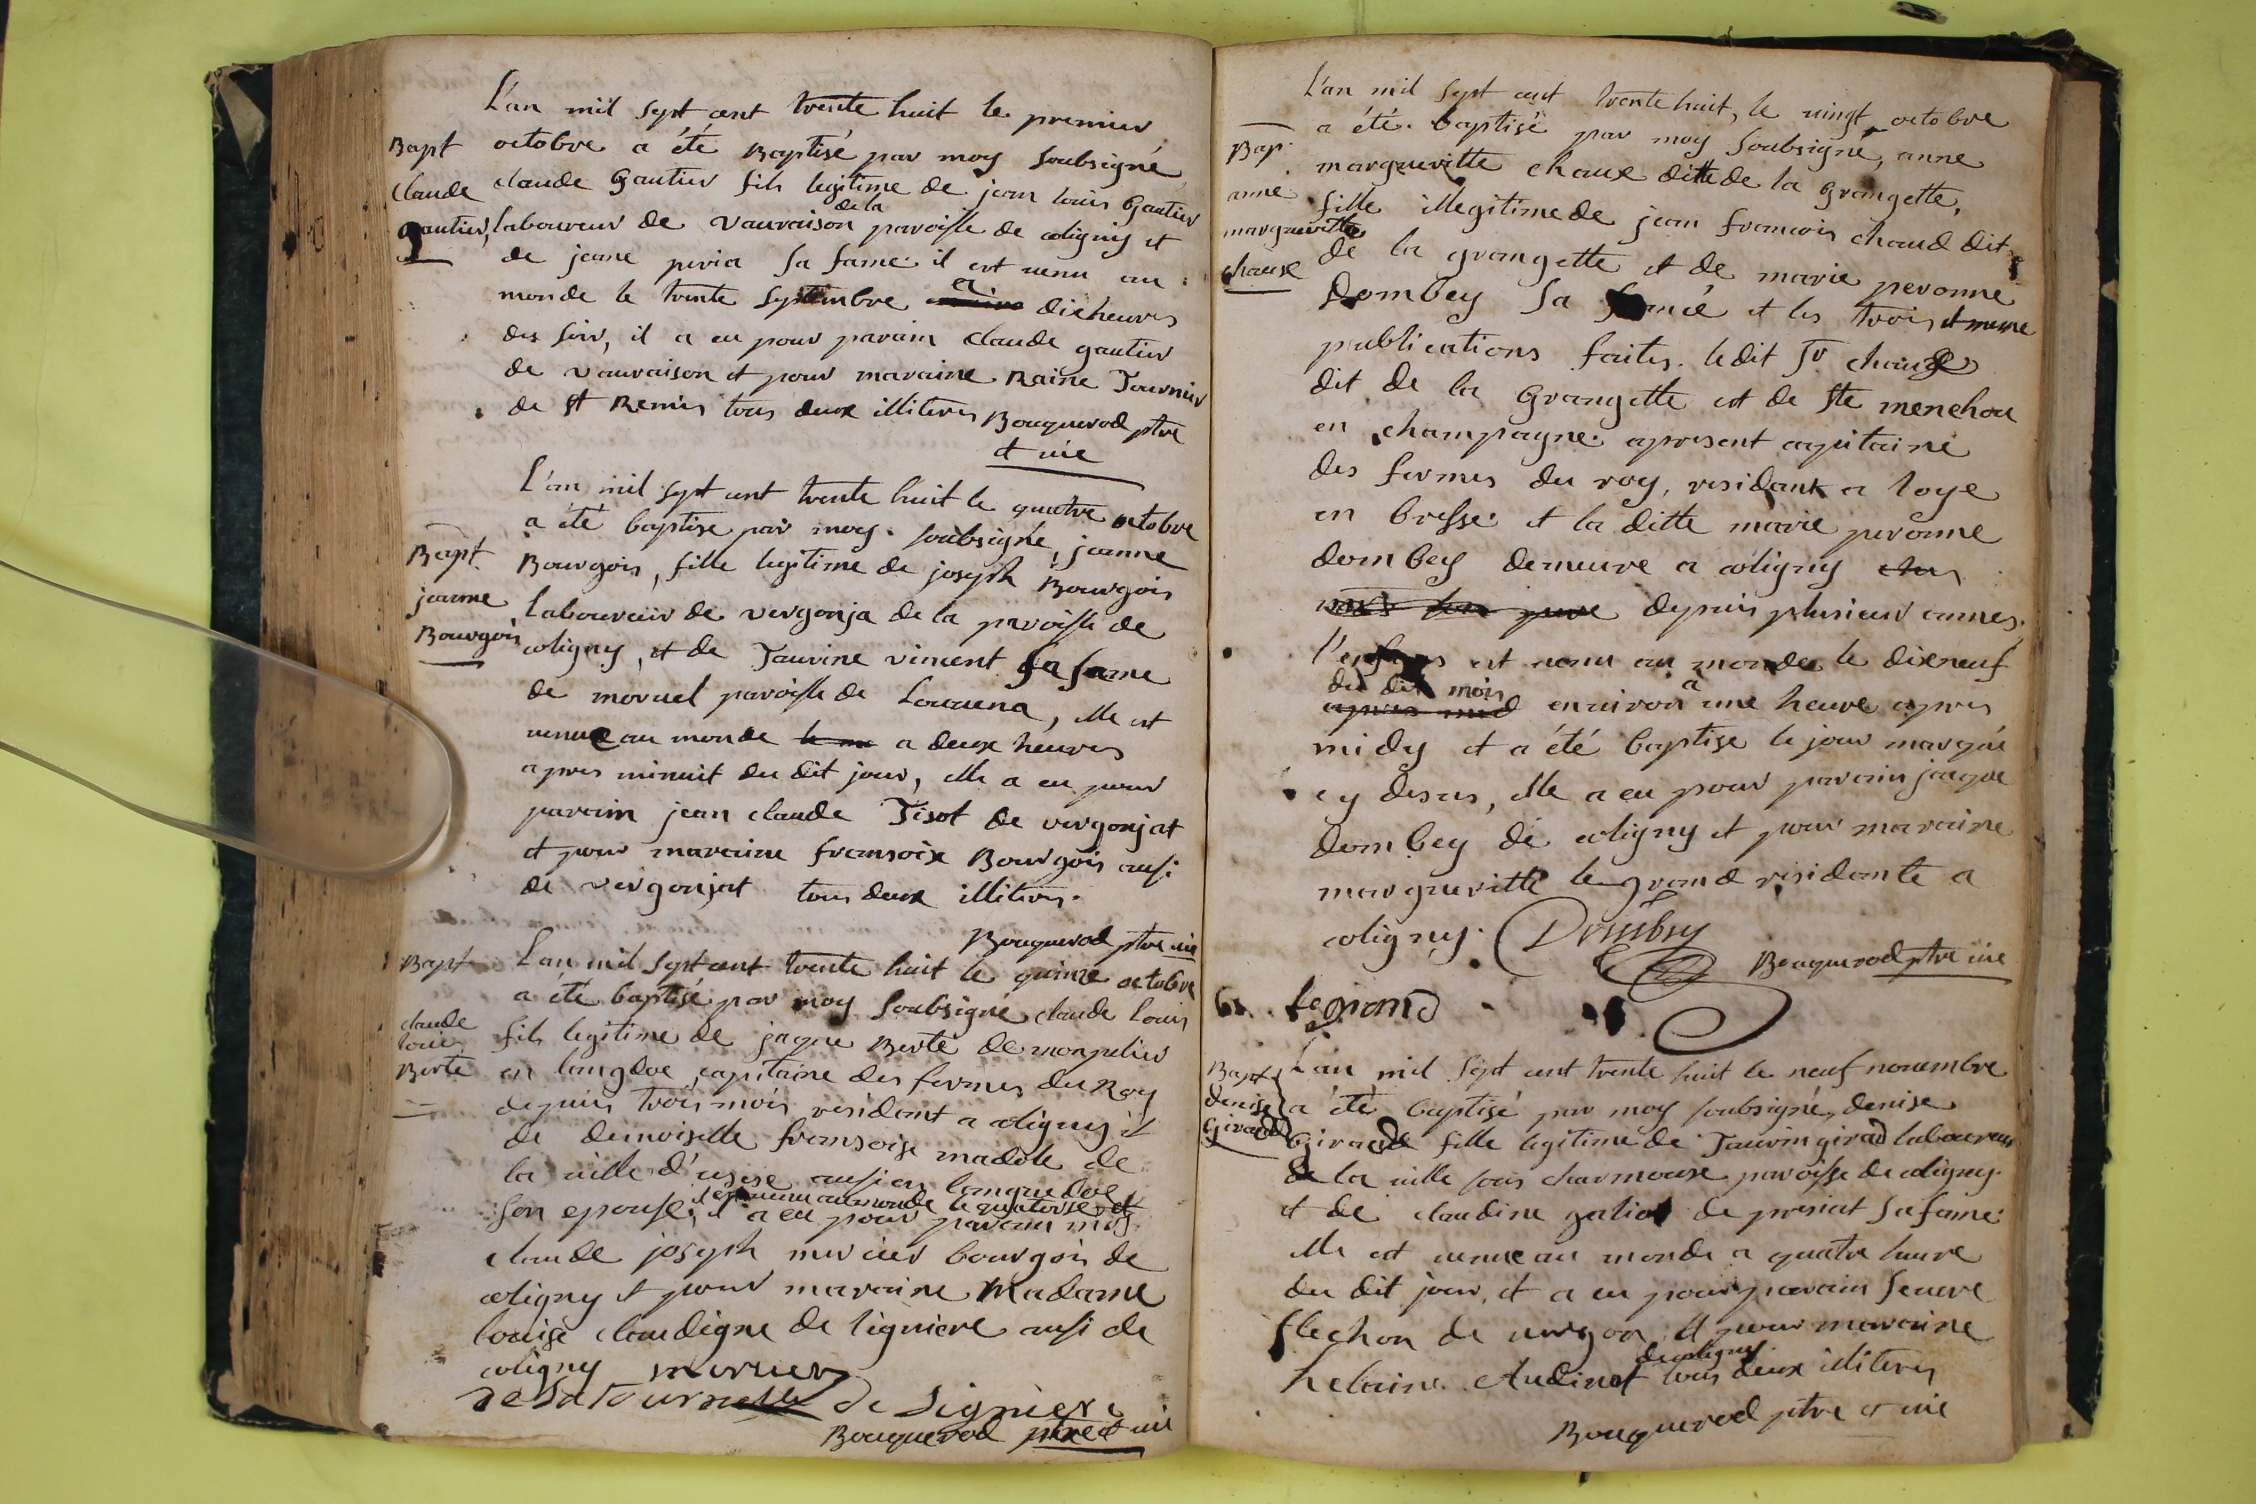 L'an mil sept cent trente huit le premier
Bapt
claude
gautier,
octobre a été Baptisé par moy soubsigné
claude Gautier fils legitime de jean louis Gautier
laboureur de vauvraison de la paroisse de coligny et
de jeane peria sa fame. il est venu au
monde le trente septembre a dix heures
des soir, il a eu pour parain claude gautier
de vauvraison et pour maraine Raine Tournier
de st Remis tous deux illiteres Bouquerod ptre
et vic
L'an mil sept cent trente huit le quatre octobre
Bapt.
jeanne
Bourgois
a été baptise par moy. soubsigné, jeanne
Bourgois, fille legitime de joseph Bourgois
laboureur de vergonja de la paroisse de
coligny, et de Taurine vincent sa fame
de moruel paroisse de Louuena, elle est
venue au monde a deux heures
apres minuit du dit jour, elle a eu pour
parain jean claude Tisot de vergonjat
et pour maraine fransoise Bourgois ausi
de vergonjat tous deux illiteres.
Bouquerod ptre vic
Bapt
claude
louis
Berte
L'an mil sept cent trente huit le quinze octobre
a été baptisé par moy soubsigné claude louis
fils legitime de jaque Berte de monpelier
en langdoc, capitaine des fermes du Roy
depuis trois mois residant a coligny et
de demoiselle fransoise madole de
la ville d'usese ausi en languedoc
son epouse, il est venu au monde le quatorse, et
il a eu pour parain mr
claude joseph mercier bourgois de
coligny et pour maraine Madame
louise claudigne de ligniere ausi de
coligny mercier
de Latournelle de Ligniere
Bouquerod ptre et vic
L'an mil sept cent trente huit, le vingt octobre
Bap.
anne
margueritte
chaux
a été. baptisé par moy soubsigné, anne
margueritte chaux ditte de la Grangette,
fille illegitime de jean francois chaud dit
de la grangette et de marie peronne
Dombey sa et les trois
publications faites. ledit Sr. chaux
dit de la Grangette est de Ste menehou
en champagne. apresent capitaine
des fermes du roy, residant a loye
en bresse. et la ditte marie peronne
dombey demeure a coligny
depuis plusieur annes.
est venu au monde le dixneuf
du dit mois
environ a une heure apres
midy et a été baptise le jour marqué
cy desus, elle a eu pour parain jaque
dombey de coligny et pour maraine
margueritte legrand residante a
coligny. Dombey
Bouquerod ptre vic
legrand
Bapt
denise
Giraud
L'an mil sept cent trente huit le neuf novembre
a été baptisé par moy soubsigné, denise
Giraud fille legitime de Taurin girad laboureur
de la ville sous charmouse paroisse de coligny.
et de claudine galio de presiat sa fame.
elle est venue au monde a quatre heure
du dit jour, et a eu pour parain seuere
flechon de vergon, et pour maraine
helaine Audinot de coligny tous deux illiteres
Bouquerod ptre et vic